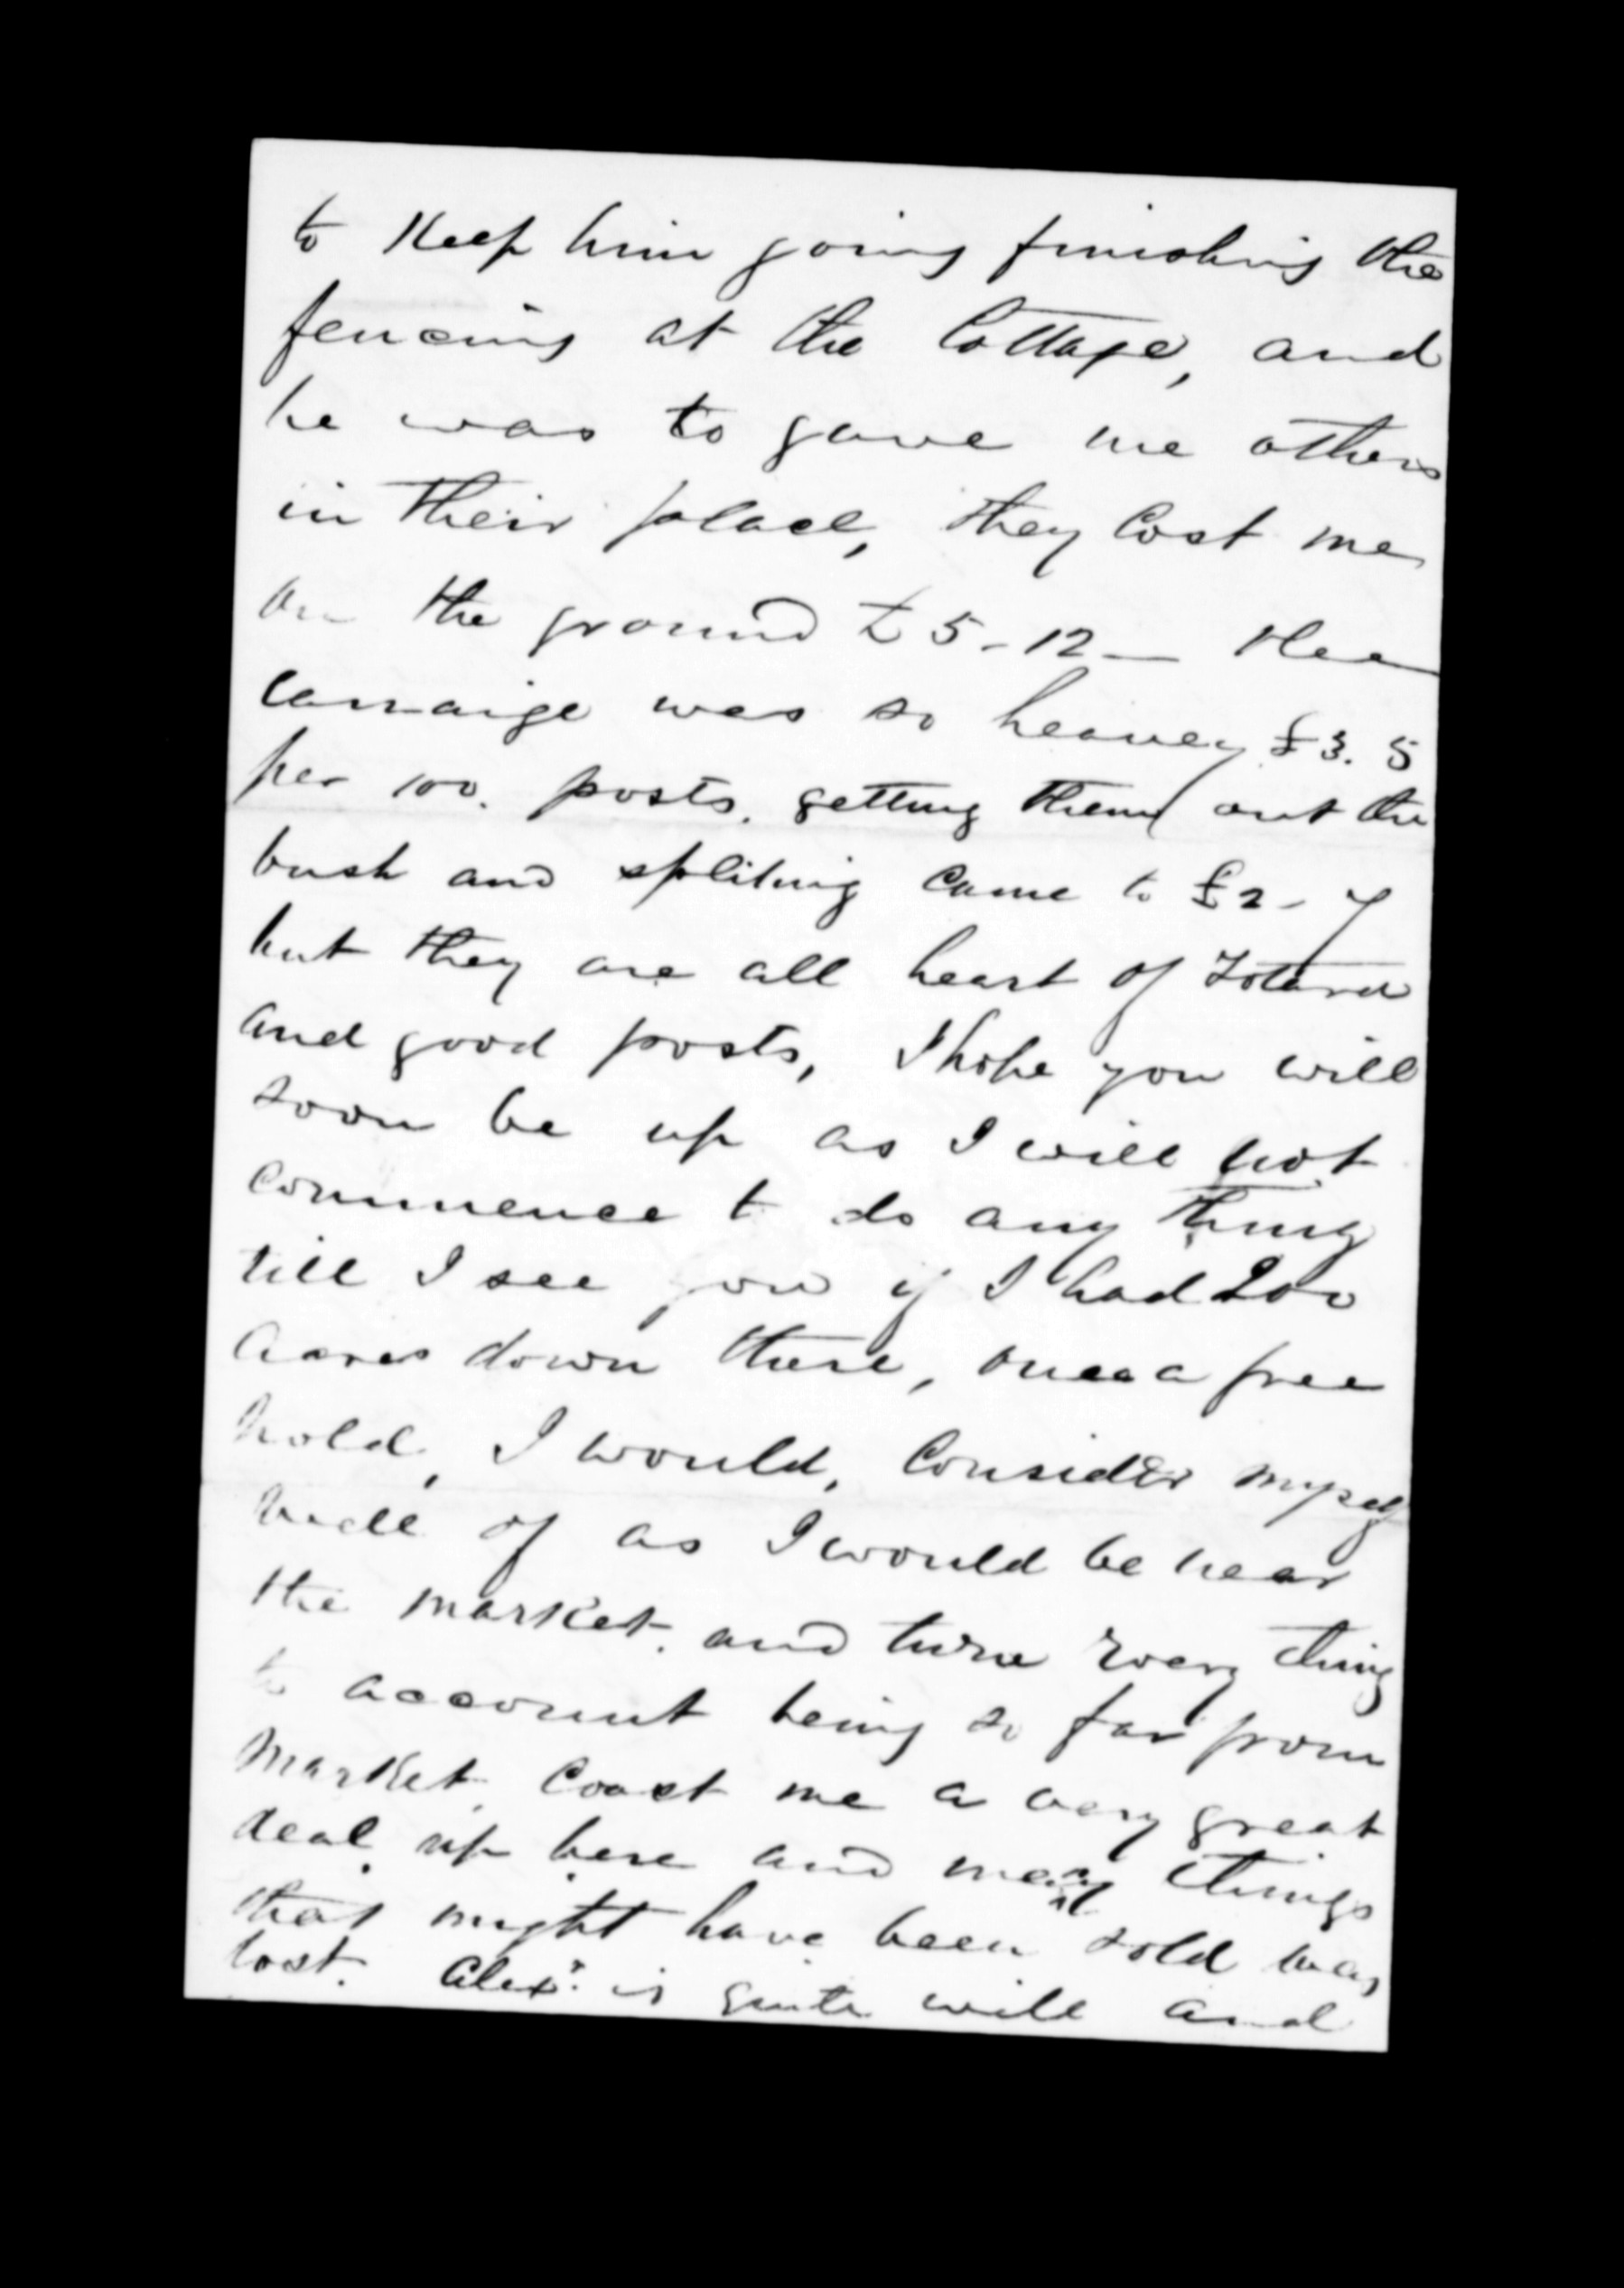 to Keep him going finishing the
fencing at the Cottage, and
he was to gave me others
in their place, they Cost me
on the ground £5-12- the
carraige was so heavey £3. 5
per 100. posts. getting them out the
bush and spliting came to £2-7
but they are all heart of Totara
and good posts, I hope you will
soon be up as I will not
commence to do any thing
till I see you if I had 200
acres down there, once a free
hold, I would, Consider myself
well of as I would be near
the market. and turn every thing
to account being so far from
market. Coast me a very great
deal up here and many things
that might have been sold was
lost. Alexr. is quite well and